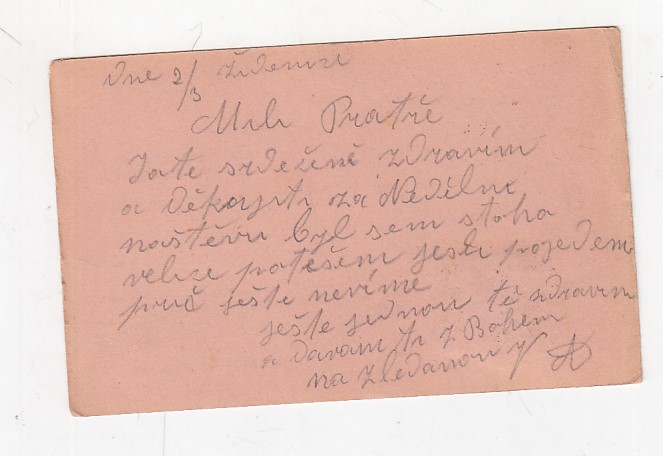 Dne 2/3 Židenice
Milí Pratře
Ja te srdečně zdravím
a děkuji ti za Nedělní
naštěvu byl sem stoho
velice potěšem jesli pojedem
prič ještě nevíme
ještě jednou tě zdravim
a davam ti z Bohem
na zledanou